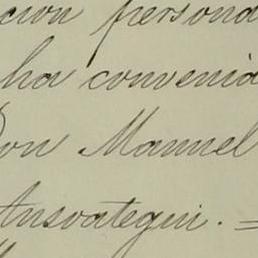 cion persona
ha convenid
Don Manuel
Ansvategui. =